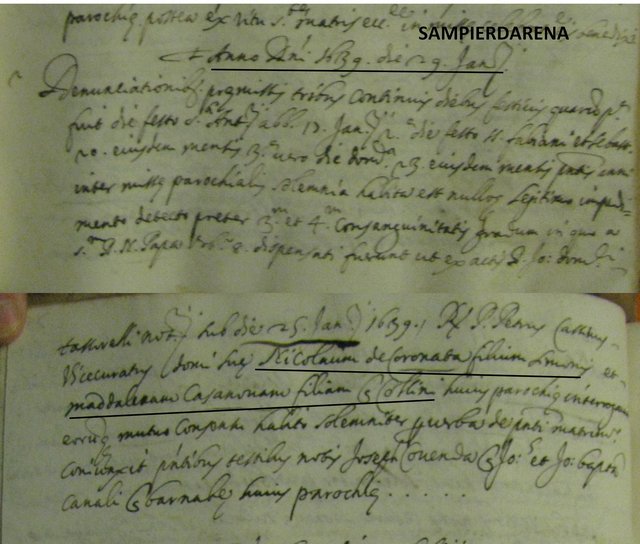 parochię postea ex ritu s.tę matris ecc.ę in missę
SAMPIERDARENA
Anno Dni 1639. die 29. Jan.ij
Denunciationib; pręmissis tribus continuis diebus festivis quarū p.a
fuit die festo S.ti Ant.ij abb. 17. Jan.ij 2.a die festo SS. Fabiani et Sebast.
20. eiusdem mensis 3.a vero die dom.ca 23 eiusdem mensis
inter missę parochialis solemnia habita est nulloq legitimo impedi-
mento detecto preter 3.m et 4.m consanguinitatis gradum in quo a
S.mo D. N. Papa Urb.o 8. dispensati fuerunt ut ex actis D. Jo: dom.ci
tassorelli not.ij sub die 25. Jan.ij 1639. R.P. Petrus
Vicecuratus domi suę Nicolaum de Coronata filium Simonis et
maddalenam Casanovam filiam q. huius parochię interrogavi
eorūq mutuo consensu habito solemniter p verba de pnti matrim.o
coniunxit pntibus testibus notis Joseph q. Jo: et Jo: bapta
canali q. barnabę huius parochię ......